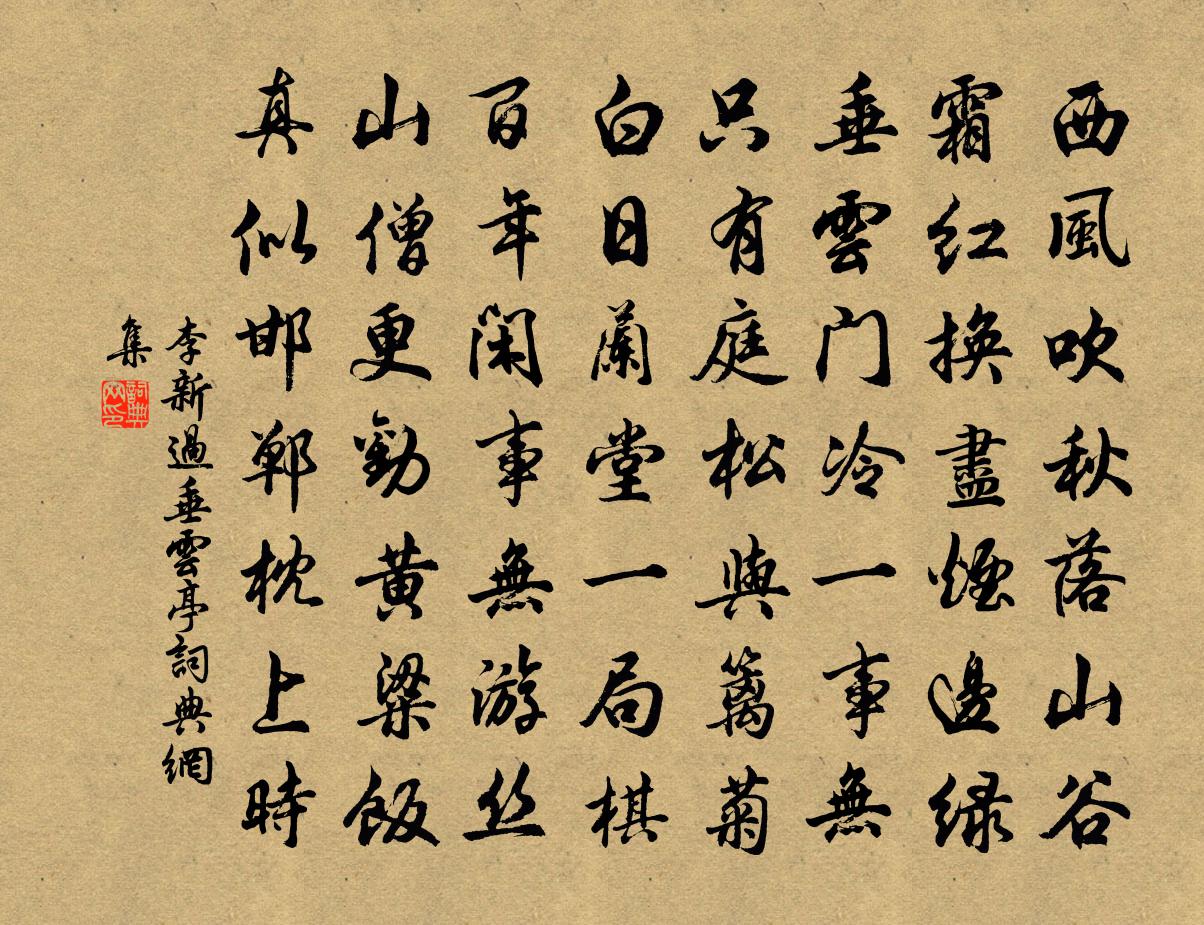 西風吹秋落山谷
霜红換盡煙邊緑
垂雲门冷一事無
只有庭松與籬菊
白日蘭堂一局棋
百年閑事無游丝
山僧更勸黄粱飯
真似邯鄲枕上時
李新過垂雲亭詞典網
集
詞典
网印